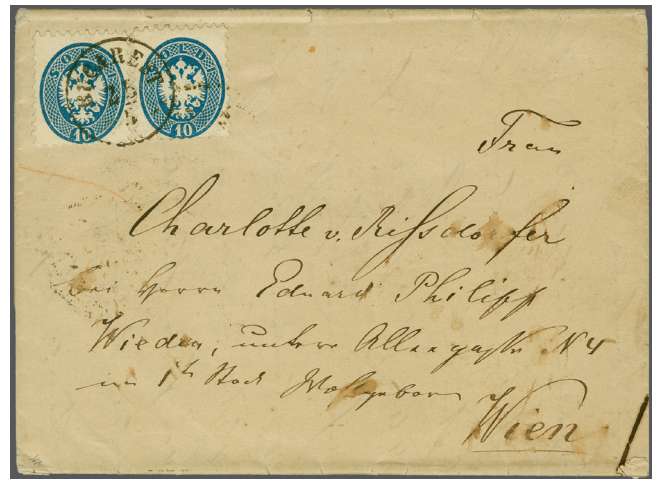 SOLDI SOLDI
BUCAREST
10 10
Frau
Charlotte v. Rissdorfer
bei Herrn Eduard Philipp
Wieden, untere Alleegasse N 4
im 1ten Stock Wohlgeboren
Wien